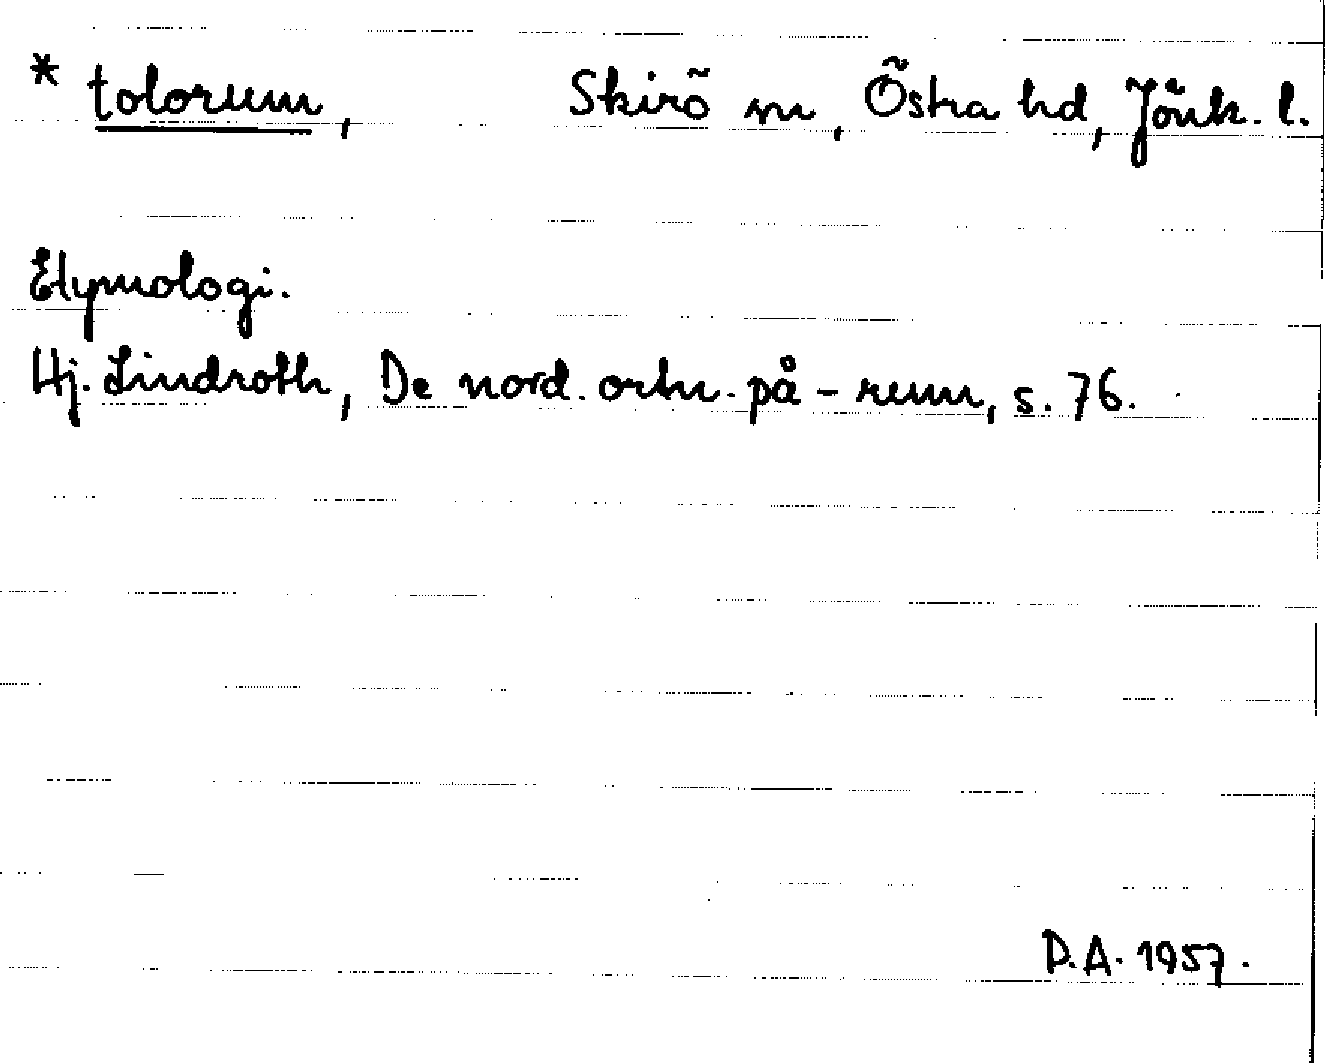 * tolorum, Skirö sn, Östra hd, Jönk. l.
Etymologi.
Hj. Lindroth, De nord. ortn. på -rum, s. 76.
D.A. 1957.